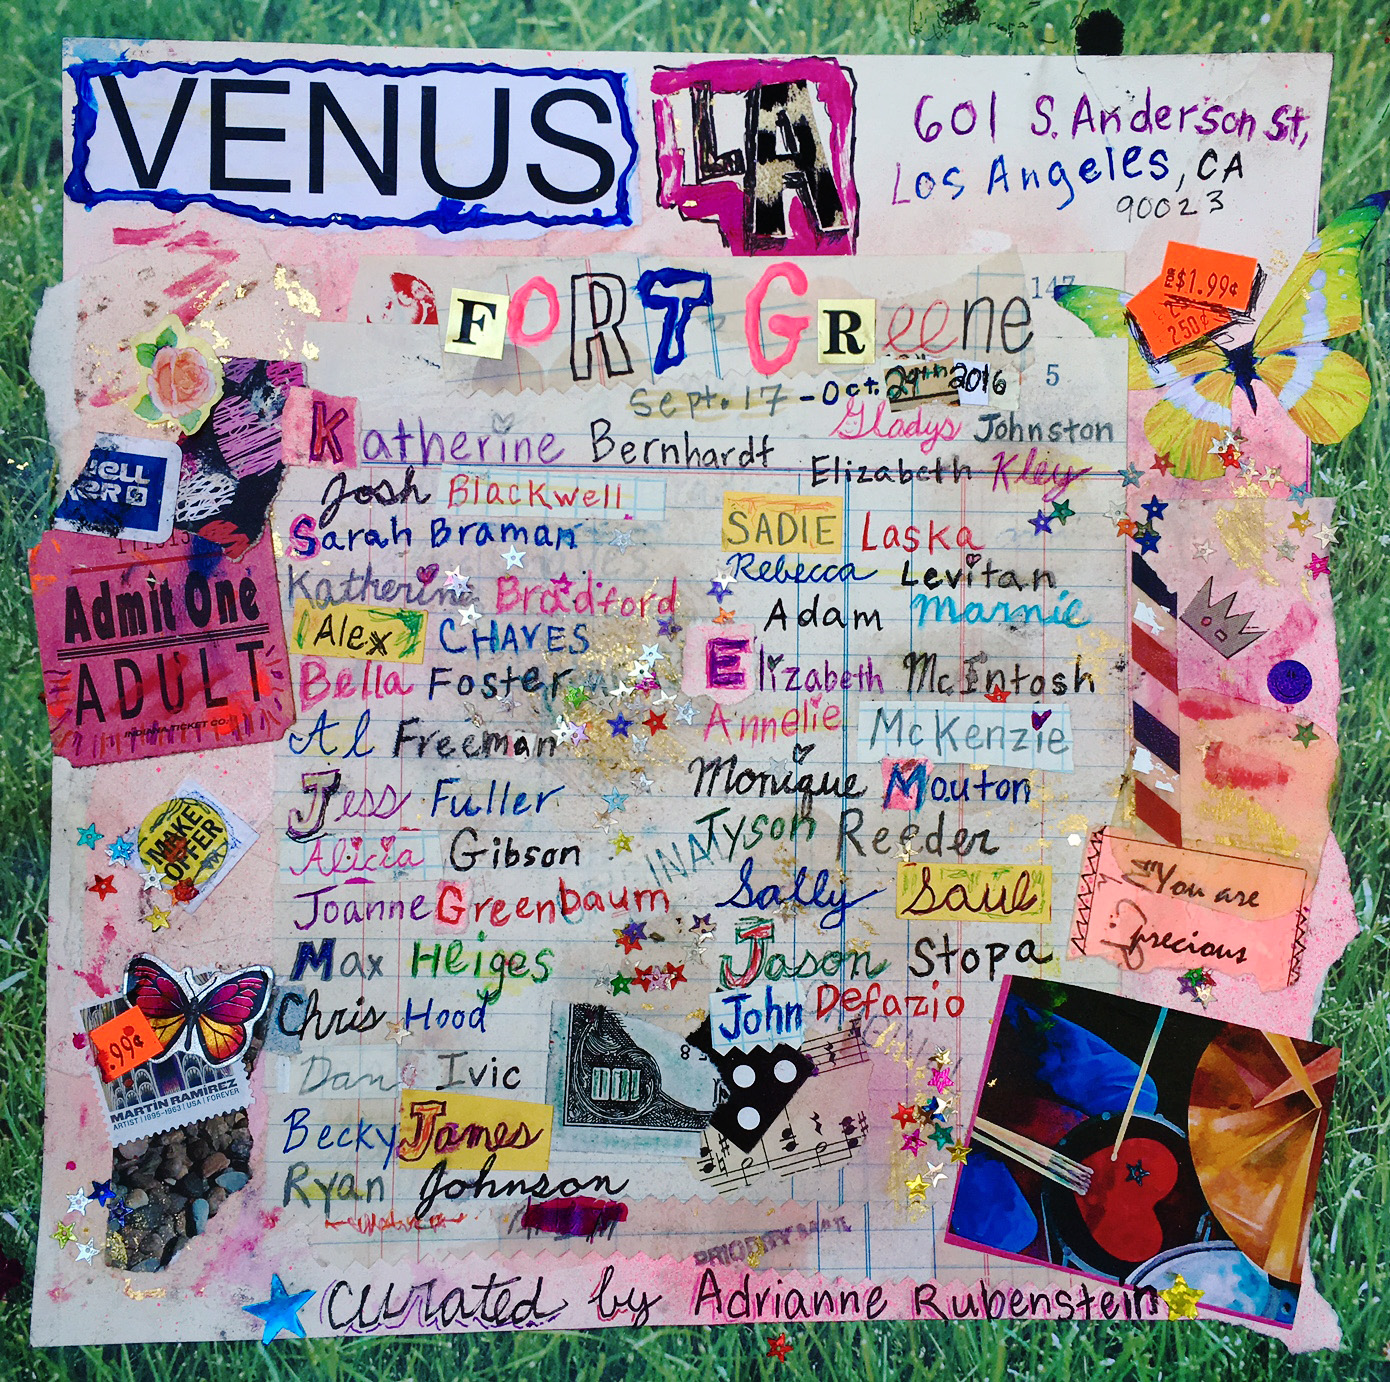 VENUS LA
601 S. Anderson St,
Los Angeles, CA
90023
FORT GReene
147
5
Sept. 17 - Oct. 29th 2016
Katherine Bernhardt
Josh Blackwell
Sarah Braman
Katherine Bradford
Alex CHAVES
Bella Foster
Al Freeman
Jess Fuller
Alicia Gibson
Joanne Greenbaum
Max Heiges
Chris Hood
Dan Ivic
Becky James
Ryan Johnson
Gladys Johnston
Elizabeth Kley
SADIE Laska
Rebecca Levitan
Adam Marnie
Elizabeth McIntosh
Annelie McKenzie
Monique Mouton
Tyson Reeder
Sally Saul
Jason Stopa
John Defazio
curated by Adrianne Rubenstein
$1.99¢
250¢
Admit One
ADULT
INDIANA TICKET CO.
MAKE
OFFER
.99¢
MARTÍN RAMÍREZ
ARTIST | 1895-1963 | USA | FOREVER
INA
You are
precious
8
PRIORITY MAIL